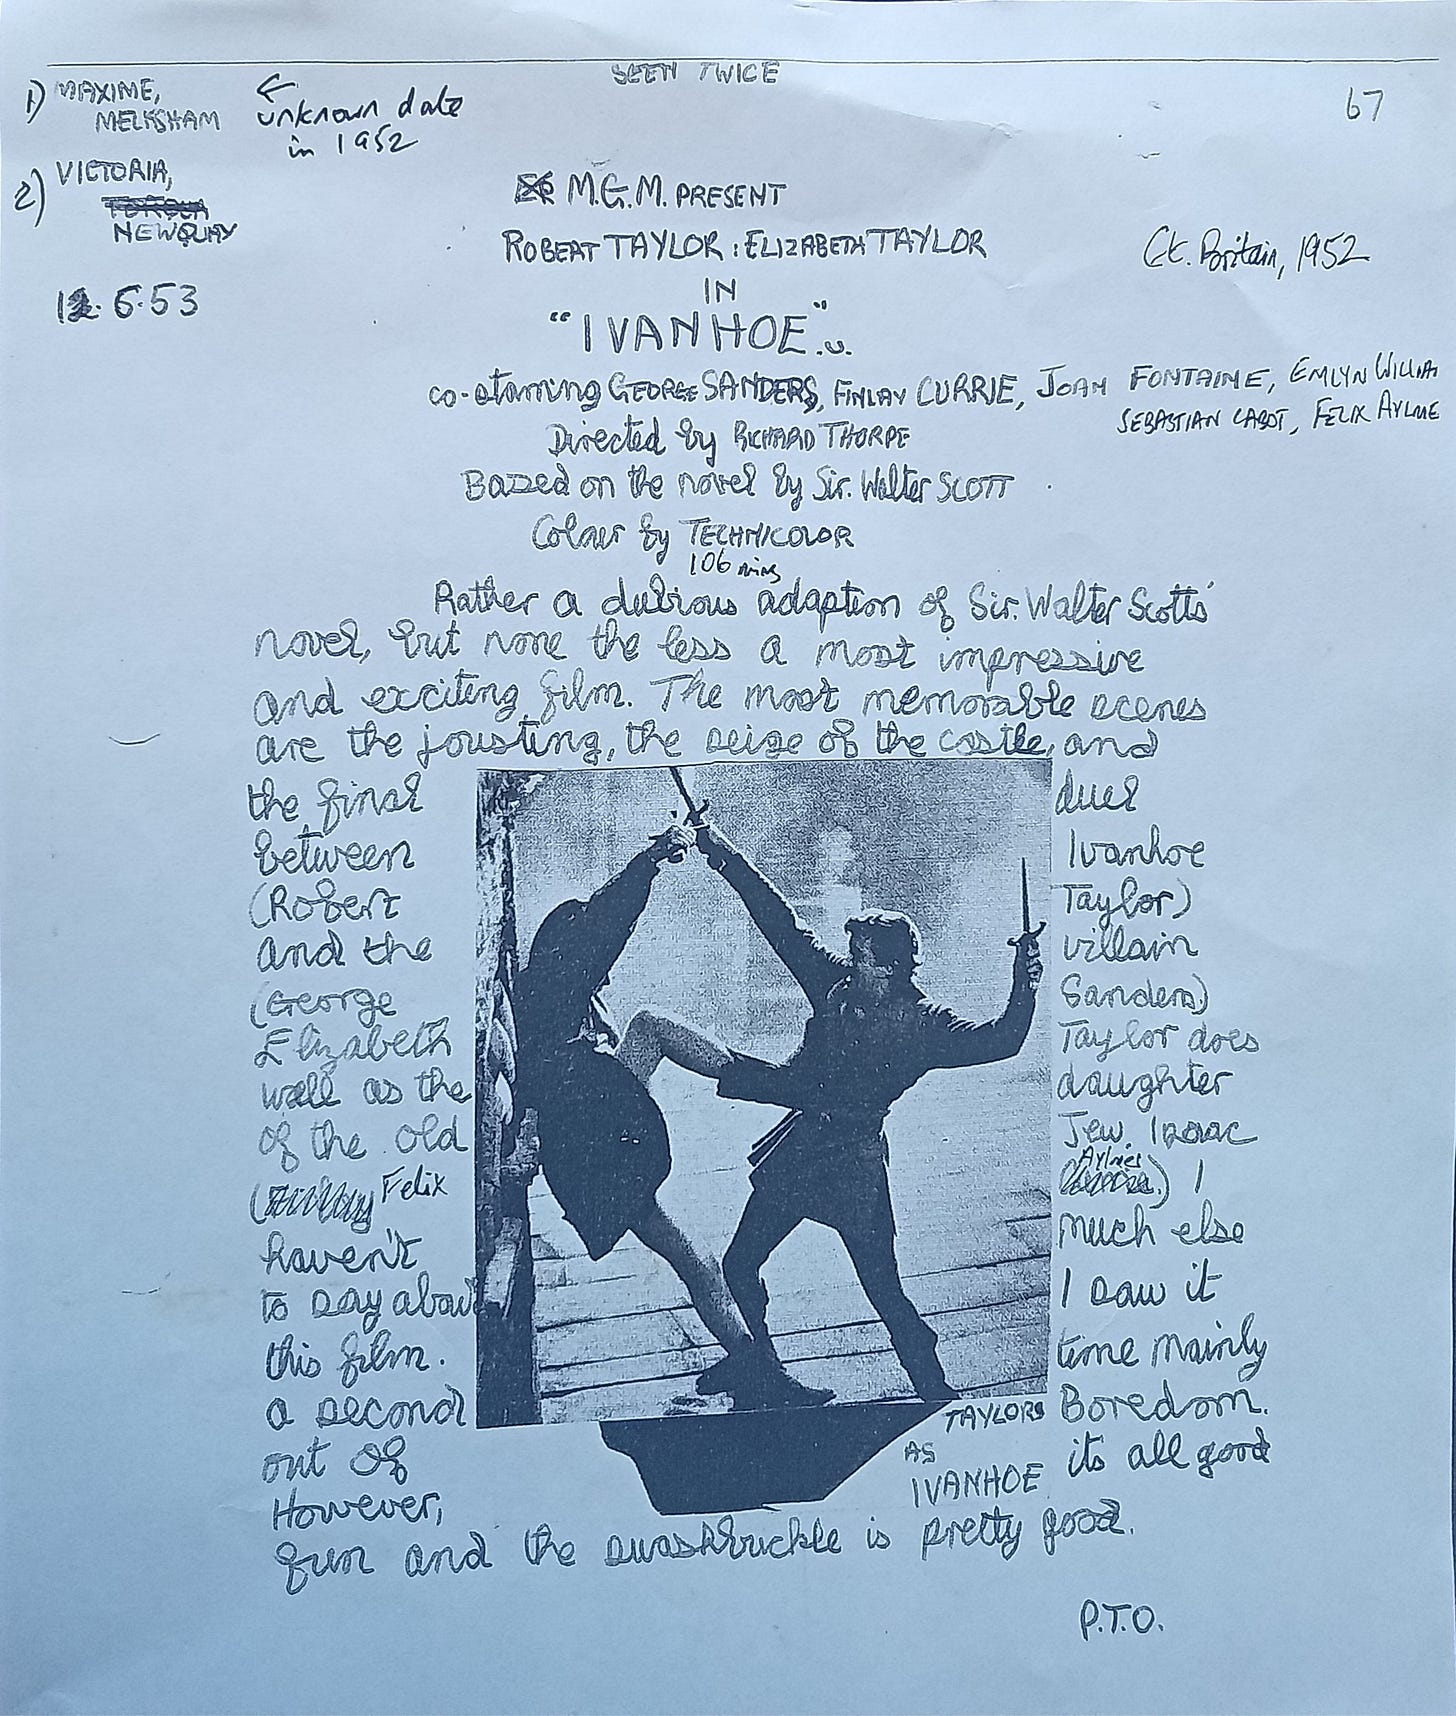 SEEN TWICE
1) MAXIME, MELKSHAM ← unknown date in 1952
67
2) VICTORIA,
NEWQUAY
12. 6. 53
M.G.M. PRESENT
ROBERT TAYLOR : ELIZABETH TAYLOR
Gt. Britain, 1952
IN
"IVANHOE". U.
co-starring GEORGE SANDERS, FINLAY CURRIE, JOAN FONTAINE, EMLYN WILLIA
SEBASTIAN CABOT, FELIX AYLME
Directed by RICHARD THORPE
Bazed on the novel by Sir. Walter SCOTT
Colour by TECHNICOLOR
106 mins
Rather a dubious adaption of Sir. Walter Scotts'
novel, but none the less a most impressive
and exciting film. The most memorable scenes
are the jousting, the seige of the castle, and
the final duel
between Ivanhoe
(Robert Taylor)
and the villain
(George Sanders)
Elizabeth Taylor does
well as the daughter
of the old Jew. Isaac
(Felix Aylmer) I
haven't much else
to say about I saw it
this film. time mainly
a second Boredom.
out of its all good
However,
TAYLORS
AS
IVANHOE
fun and the swashbuckle is pretty good.
P.T.O.